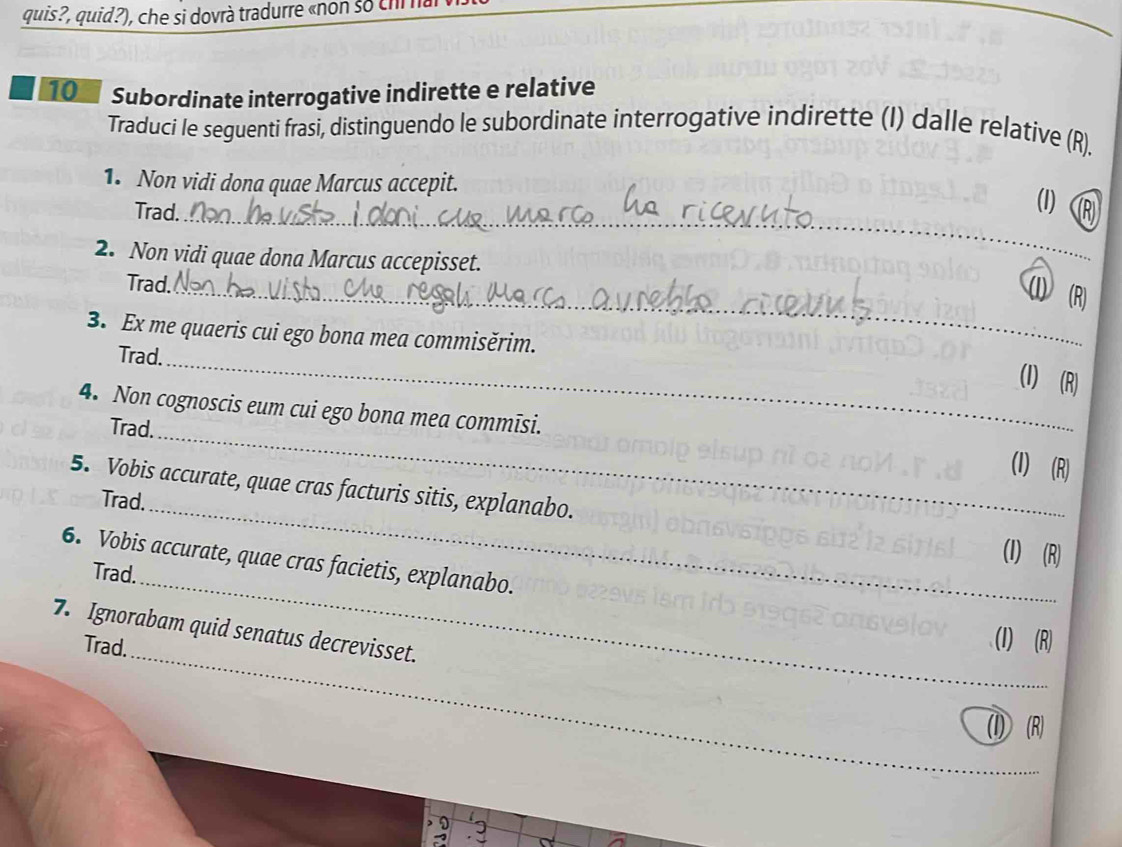 quis?, quid?), che si dovrà tradurre «non so chi
10 Subordinate interrogative indirette e relative
Traduci le seguenti frasi, distinguendo le subordinate interrogative indirette (I) dalle relative (R).
1. Non vidi dona quae Marcus accepit.
(I) (R)
Trad. Non ho visto i doni che Marco ha ricevuto
2. Non vidi quae dona Marcus accepisset.
(I) (R)
Trad. Non ho visto che regali Marco avrebbe ricevuto
3. Ex me quaeris cui ego bona mea commisĕrim.
Trad.
(I) (R)
4. Non cognoscis eum cui ego bona mea commīsi.
Trad.
(I) (R)
5. Vobis accurate, quae cras facturis sitis, explanabo.
Trad.
(I) (R)
6. Vobis accurate, quae cras facietis, explanabo.
Trad.
(I) (R)
7. Ignorabam quid senatus decrevisset.
Trad.
(I) (R)